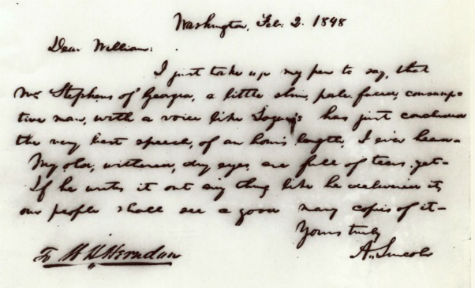 Washington, Feb. 2. 1848
Dear William:
I just take up my pen to say, that
Mr. Stephens of Georgia, a little slim, pale-faced, consump-
tive man, with a voice like Logan's has just concluded
the very best speech, of an hour's length, I ever heard.
My old, withered, dry eyes, are full of tears yet.
If he writes it out any thing like he delivered it,
our people shall see a good many copies of it.
Yours truly
A. Lincoln
To W. H. Herndon